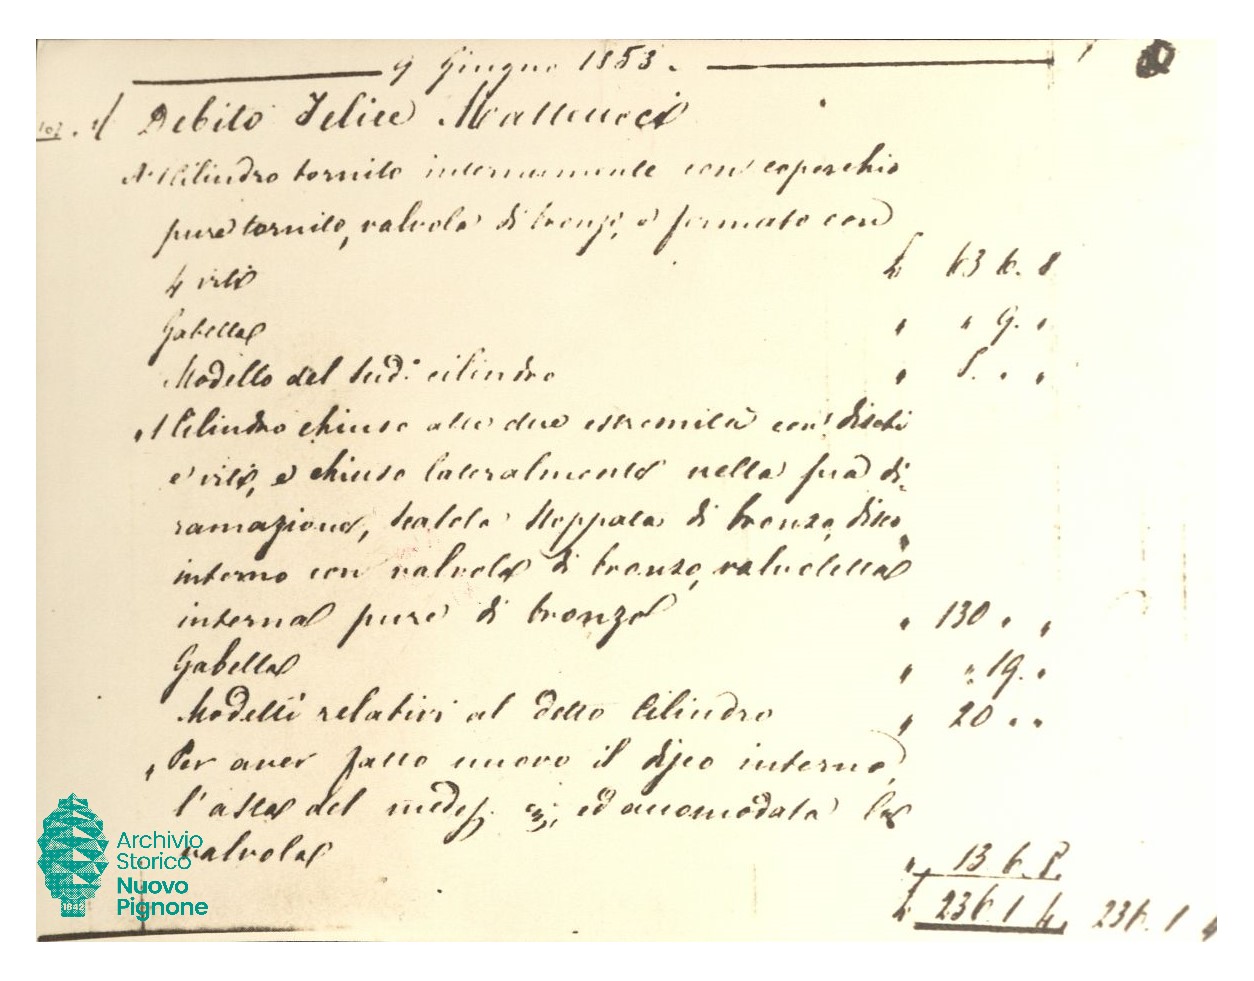 9 Giugno 1853.
107. Debito Felice Matteucci
N° 1 Cilindro tornito internamente con coperchio
pure tornito, valvola di bronzo, e fermato con
4 viti £ 63 6. 8
Gabella " " 9. "
Modello del sud.° cilindro " 8. " "
" 1 Cilindro chiuso alle due estremità con dischi
e viti, e chiuso lateralmente nella sua di-
ramazione, scatola stoppata di bronzo, disco
interno con valvola di bronzo, valvoletta
interna pure di bronzo " 130 " "
Gabella " " 19. "
Modelli relativi al detto Cilindro " 20 " "
" Per aver fatto nuovo il disco interno,
l'asta del ed accomodata la
valvola " 13 6. 8.
£ 236 1 4 236. 1 4
Archivio
Storico
Nuovo
Pignone
1842